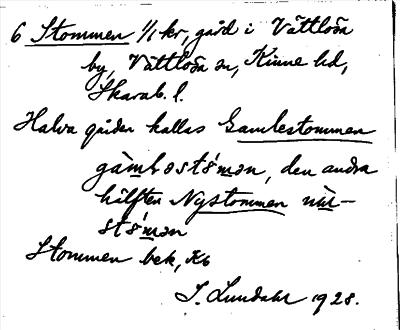 6 Stommen 1/1 kr, gård i Vättlösa
by, Vättlösa sn, Kinne hd,
Skarab. l.
Halva gården kallas Gamlestommen
gàmləstɷ́mən, den andra
hälften Nystommen
Stommen bek, Kb
I. Lundahl 1928.